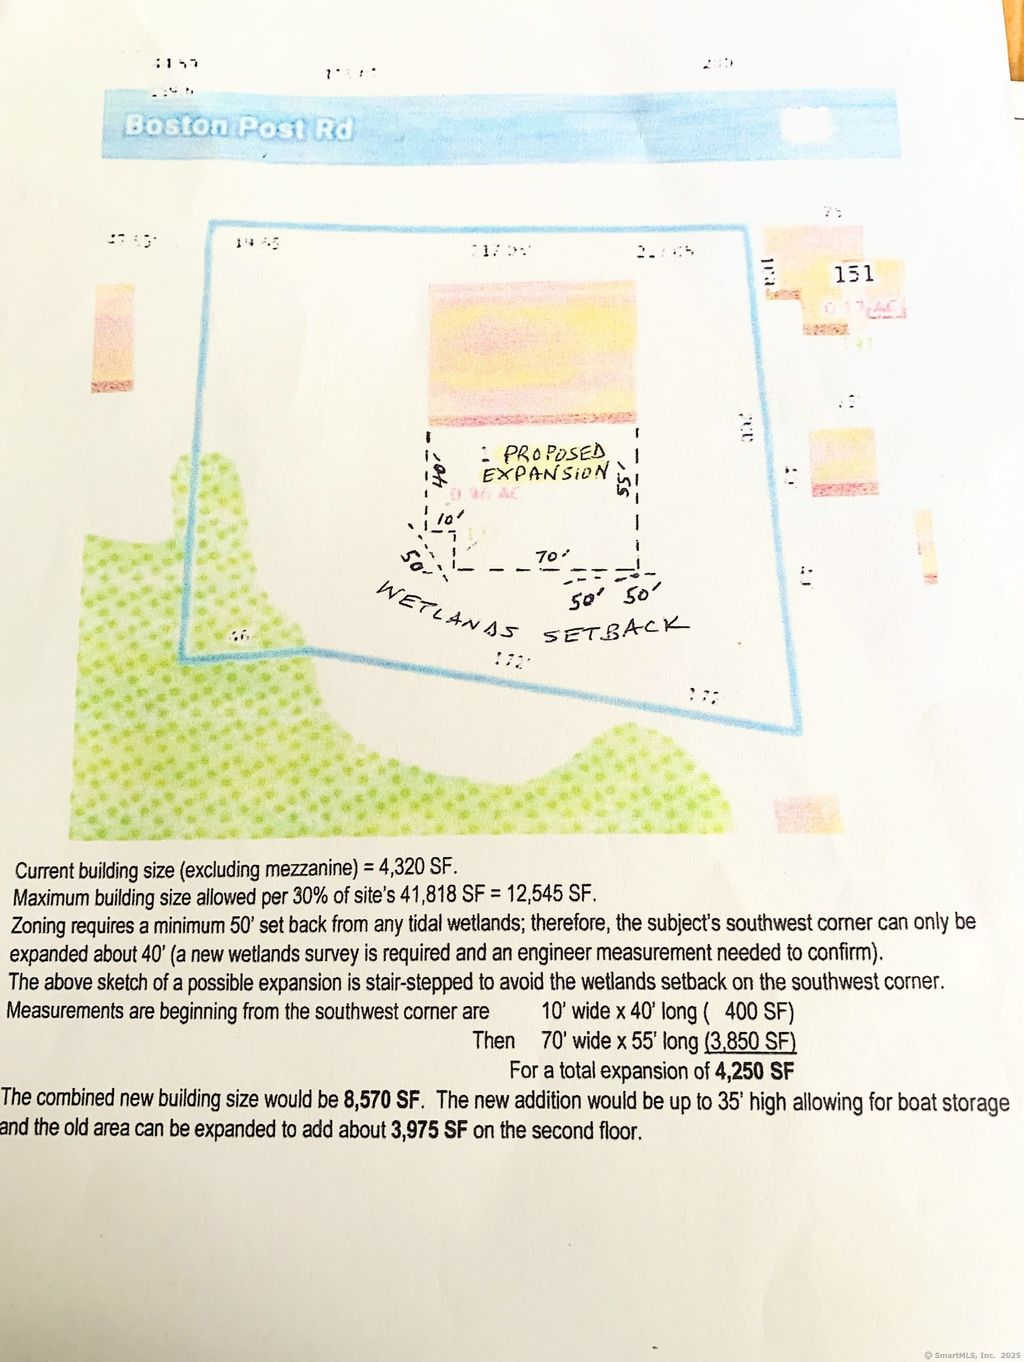 Boston Post Rd
19.65
131
0.17 AC
PROPOSED
EXPANSION
40'
55'
0.96 AC
10'
70'
50'
50' 50'
WETLANDS SETBACK
46
172'
Current building size (excluding mezzanine) = 4,320 SF.
Maximum building size allowed per 30% of site's 41,818 SF = 12,545 SF.
Zoning requires a minimum 50' set back from any tidal wetlands; therefore, the subject's southwest corner can only be
expanded about 40' (a new wetlands survey is required and an engineer measurement needed to confirm).
The above sketch of a possible expansion is stair-stepped to avoid the wetlands setback on the southwest corner.
Measurements are beginning from the southwest corner are 10' wide x 40' long ( 400 SF)
Then 70' wide x 55' long (3,850 SF)
For a total expansion of 4,250 SF
The combined new building size would be 8,570 SF. The new addition would be up to 35' high allowing for boat storage
and the old area can be expanded to add about 3,975 SF on the second floor.
© SmartMLS, Inc. 2025